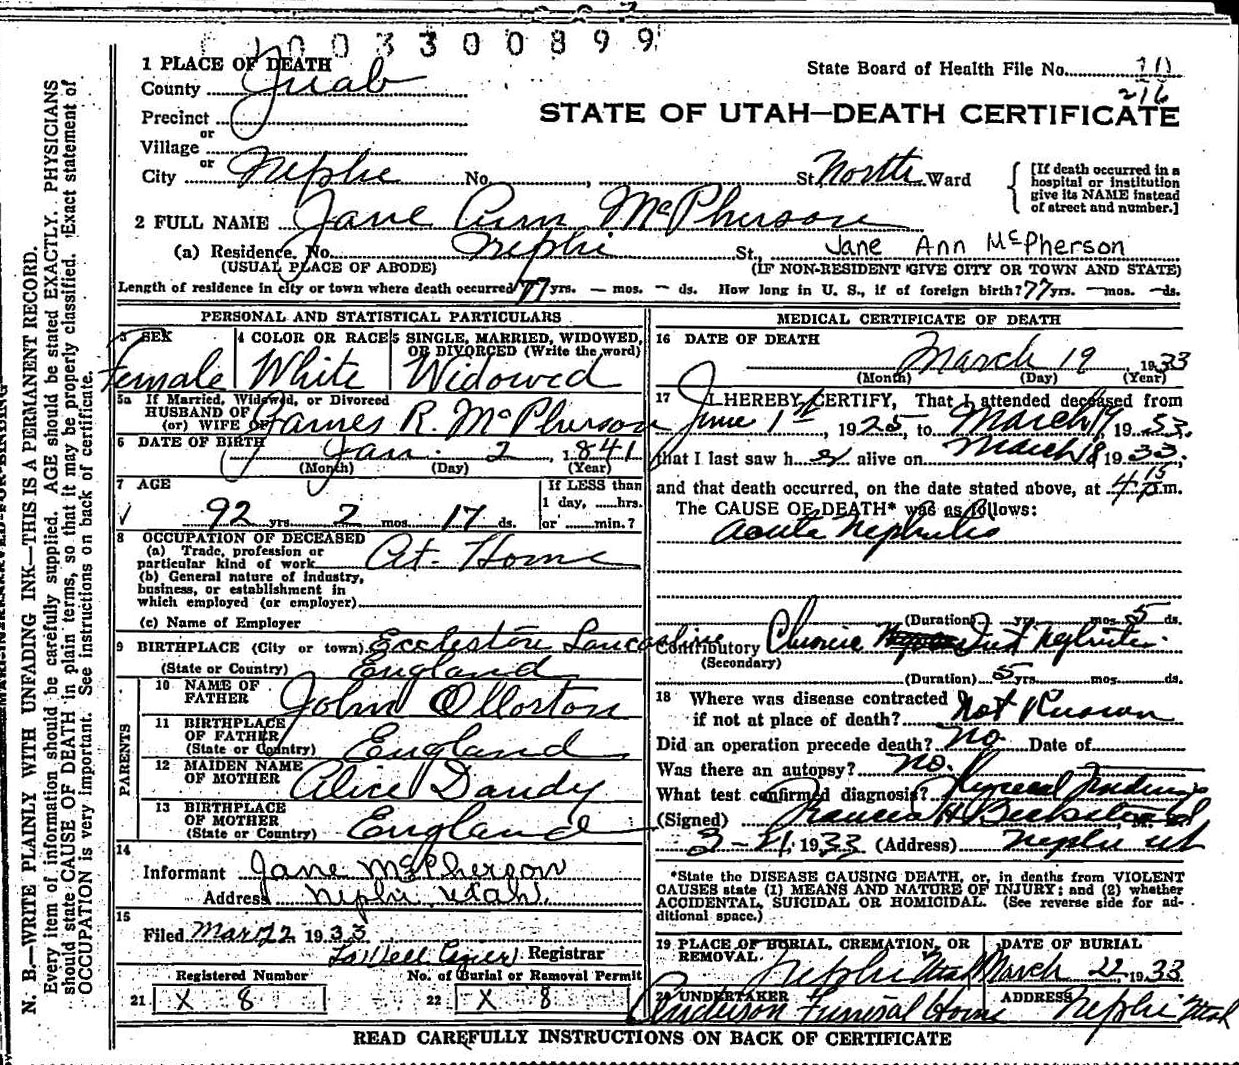 1003300899
1 PLACE OF DEATH
State Board of Health File No.
County Juab
216
STATE OF UTAH—DEATH CERTIFICATE
Precinct
or
Village
or
City Nephi No. St. North Ward
[If death occurred in a hospital or institution give its NAME instead of street and number.]
2 FULL NAME Jane Ann McPherson
(a) Residence. No. Nephi St., Jane Ann McPherson
(USUAL PLACE OF ABODE) (IF NON-RESIDENT GIVE CITY OR TOWN AND STATE)
Length of residence in city or town where death occurred 77 yrs. — mos. — ds. How long in U. S., if of foreign birth? 77 yrs. — mos. — ds.
PERSONAL AND STATISTICAL PARTICULARS
3 SEX 4 COLOR OR RACE 5 SINGLE, MARRIED, WIDOWED, OR DIVORCED (Write the word)
Female White Widowed
5a If Married, Widowed, or Divorced
HUSBAND OF
(or) WIFE OF James R. McPherson
6 DATE OF BIRTH Jan. 2 1841
(Month) (Day) (Year)
7 AGE
If LESS than
1 day, hrs.
or min.?
92 yrs. 2 mos. 17 ds.
8 OCCUPATION OF DECEASED
(a) Trade, profession or
particular kind of work At Home
(b) General nature of industry,
business, or establishment in
which employed (or employer)
(c) Name of Employer
9 BIRTHPLACE (City or town) Eccleston Lancashire
(State or Country) England
PARENTS
10 NAME OF FATHER John Ollorton
11 BIRTHPLACE OF FATHER (State or Country) England
12 MAIDEN NAME OF MOTHER Alice Dandy
13 BIRTHPLACE OF MOTHER (State or Country) England
14
Informant Jane McPherson
Address Nephi Utah.
15
Filed Mar 22 1933
Registrar
Registered Number No. of Burial or Removal Permit
21 X 8 22 X 8
MEDICAL CERTIFICATE OF DEATH
16 DATE OF DEATH
March 19 1933
(Month) (Day) (Year)
17 I HEREBY CERTIFY, That I attended deceased from
June 1st, 1925, to March 19, 1933.
that I last saw her alive on March 18 1933.
and that death occurred, on the date stated above, at 4 15 p.m.
The CAUSE OF DEATH* was as follows:
Acute Nephritis
(Duration) yrs. mos. 5 ds.
Contributory Chronic Nephritis
(Secondary)
(Duration) 5 yrs. mos. ds.
18 Where was disease contracted
if not at place of death? Not Known
Did an operation precede death? No. Date of
Was there an autopsy? No.
What test confirmed diagnosis? Physical Findings
(Signed)
3-21, 1933 (Address) Nephi Ut
*State the DISEASE CAUSING DEATH, or, in deaths from VIOLENT
CAUSES state (1) MEANS AND NATURE OF INJURY; and (2) whether
ACCIDENTAL, SUICIDAL OR HOMICIDAL. (See reverse side for ad-
ditional space.)
19 PLACE OF BURIAL, CREMATION, OR REMOVAL DATE OF BURIAL
Nephi Utah March 22, 1933
20 UNDERTAKER ADDRESS
Anderson Funeral Home Nephi Utah
READ CAREFULLY INSTRUCTIONS ON BACK OF CERTIFICATE
N. B.—WRITE PLAINLY WITH UNFADING INK—THIS IS A PERMANENT RECORD.
Every item of information should be carefully supplied. AGE should be stated EXACTLY. PHYSICIANS
should state CAUSE OF DEATH in plain terms, so that it may be properly classified. Exact statement of
OCCUPATION is very important. See instructions on back of certificate.